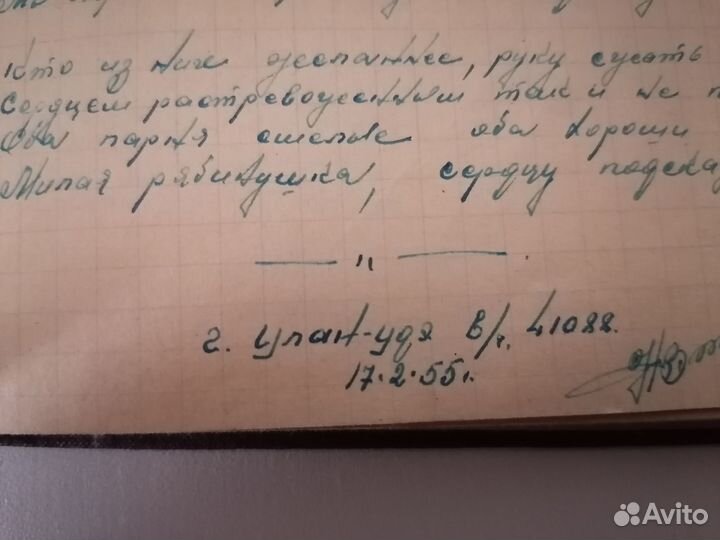 кто из них желаннее, руку сжать
Сердцем растревоженным так и не п
Оба парня смелые оба хороши
Милая рябинушка, сердцу подска
— " —
г. Улан-Удэ в/ч. 41088.
17.2.55г.
Avito